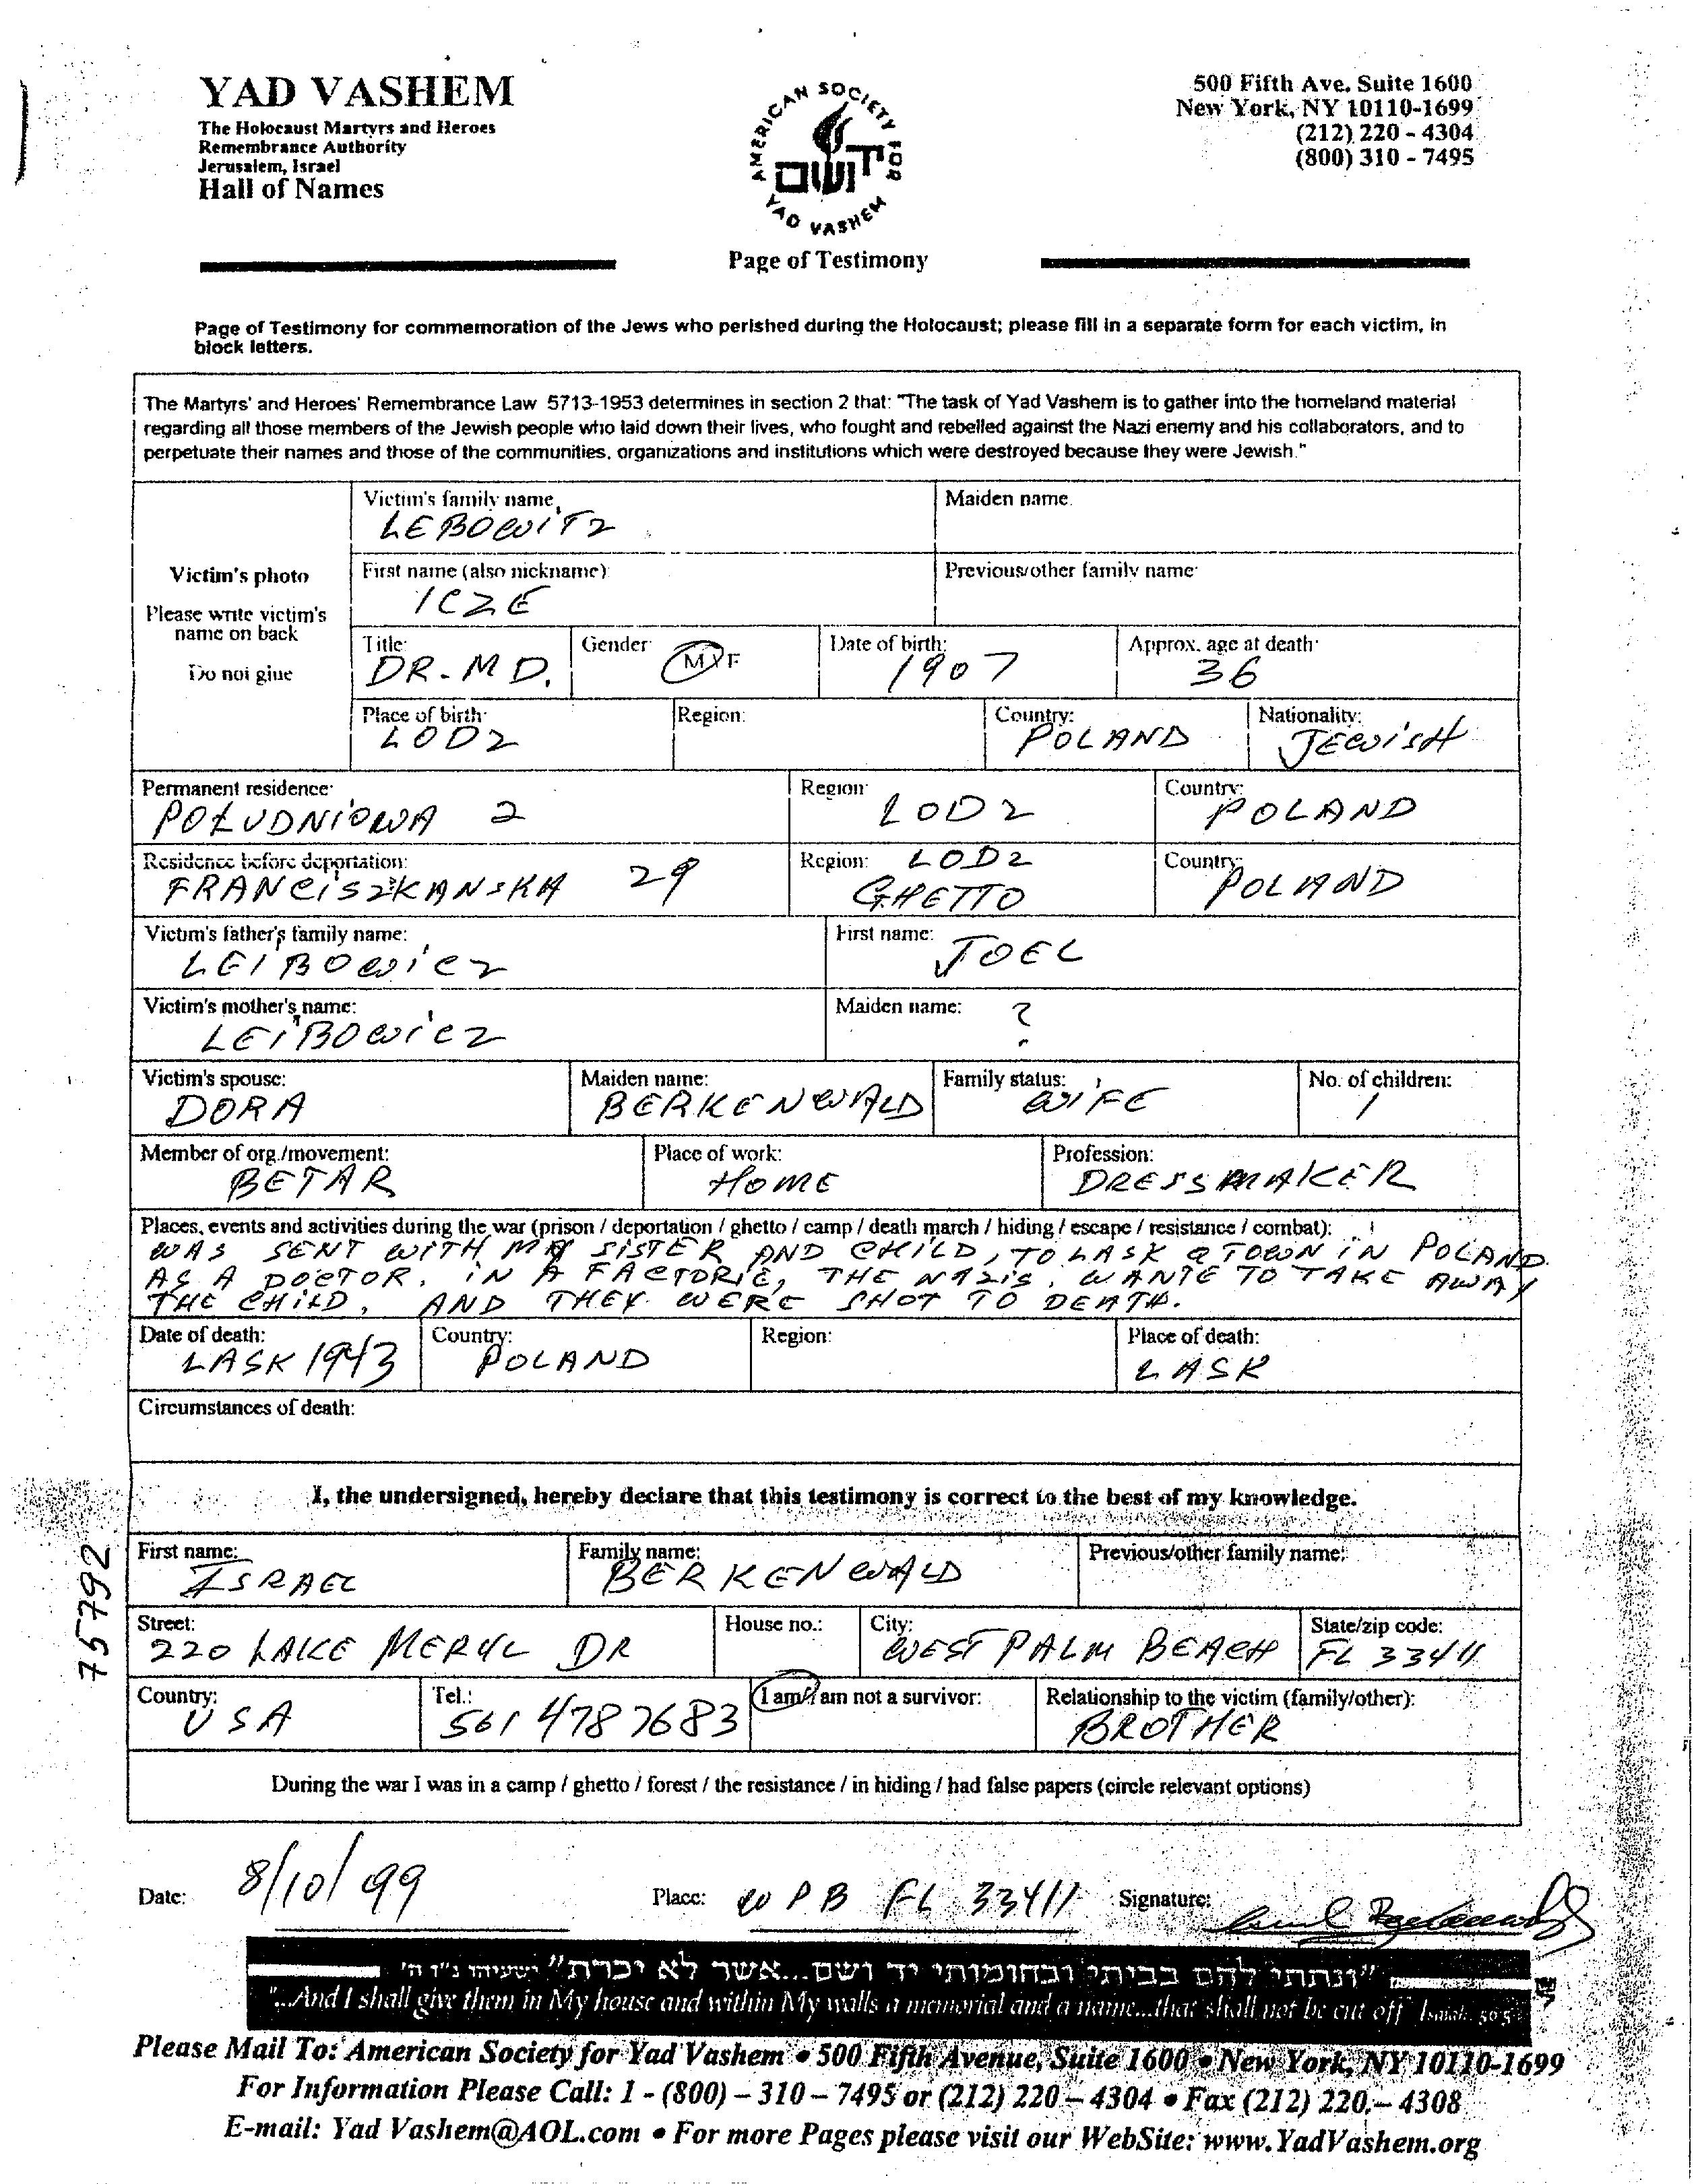 YAD VASHEM
The Holocaust Martyrs and Heroes
Remembrance Authority
Jerusalem, Israel
Hall of Names
AMERICAN SOCIETY FOR YAD VASHEM
יד ושם
500 Fifth Ave. Suite 1600
New York, NY 10110-1699
(212) 220 - 4304
(800) 310 - 7495
Page of Testimony
Page of Testimony for commemoration of the Jews who perished during the Holocaust; please fill in a separate form for each victim, in
block letters.
The Martyrs' and Heroes' Remembrance Law 5713-1953 determines in section 2 that: "The task of Yad Vashem is to gather into the homeland material
regarding all those members of the Jewish people who laid down their lives, who fought and rebelled against the Nazi enemy and his collaborators, and to
perpetuate their names and those of the communities, organizations and institutions which were destroyed because they were Jewish."
Victim's photo
Please write victim's
name on back
Do not glue
Victim's family name
LEBOWITZ
Maiden name
First name (also nickname)
ICZE
Previous/other family name
Title: DR. MD.
Gender M/F
Date of birth: 1907
Approx. age at death: 36
Place of birth: LODZ
Region:
Country: POLAND
Nationality: JEWISH
Permanent residence: POŁUDNIOWA 2
Region LODZ
Country: POLAND
Residence before deportation: FRANCISZKANSKA 29
Region: LODZ GHETTO
Country: POLAND
Victim's father's family name: LEIBOWICZ
First name: JOEL
Victim's mother's name: LEIBOWICZ
Maiden name: ?
Victim's spouse: DORA
Maiden name: BERKENWALD
Family status: WIFE
No. of children: 1
Member of org./movement: BETAR
Place of work: HOME
Profession: DRESSMAKER
Places, events and activities during the war (prison / deportation / ghetto / camp / death march / hiding / escape / resistance / combat):
WAS SENT WITH MY SISTER AND CHILD, TO LASK A TOWN IN POLAND
AS A DOCTOR. IN A FACTORIE, THE NAZIS, WANTE TO TAKE AWAY
THE CHILD, AND THEY WERE SHOT TO DEATH.
Date of death: LASK 1943
Country: POLAND
Region:
Place of death: LASK
Circumstances of death:
I, the undersigned, hereby declare that this testimony is correct to the best of my knowledge.
First name: ISRAEL
Family name: BERKENWALD
Previous/other family name:
Street: 220 LAKE MERYL DR
House no.:
City: WEST PALM BEACH
State/zip code: FL 33411
Country: USA
Tel.: 561 4787683
I am/I am not a survivor:
Relationship to the victim (family/other): BROTHER
75792
During the war I was in a camp / ghetto / forest / the resistance / in hiding / had false papers (circle relevant options)
Date: 8/10/99
Place: W P B FL 33411
Signature:
"ונתתי להם בביתי ובחומותי יד ושם...אשר לא יכרת" ישעיהו נ"ו ה'
"...And I shall give them in My house and within My walls a memorial and a name...that shall not be cut off" Isaiah. 56:5
Please Mail To: American Society for Yad Vashem • 500 Fifth Avenue, Suite 1600 • New York, NY 10110-1699
For Information Please Call: 1 - (800) – 310 – 7495 or (212) 220 – 4304 • Fax (212) 220 – 4308
E-mail: Yad Vashem@AOL.com • For more Pages please visit our WebSite: www.YadVashem.org